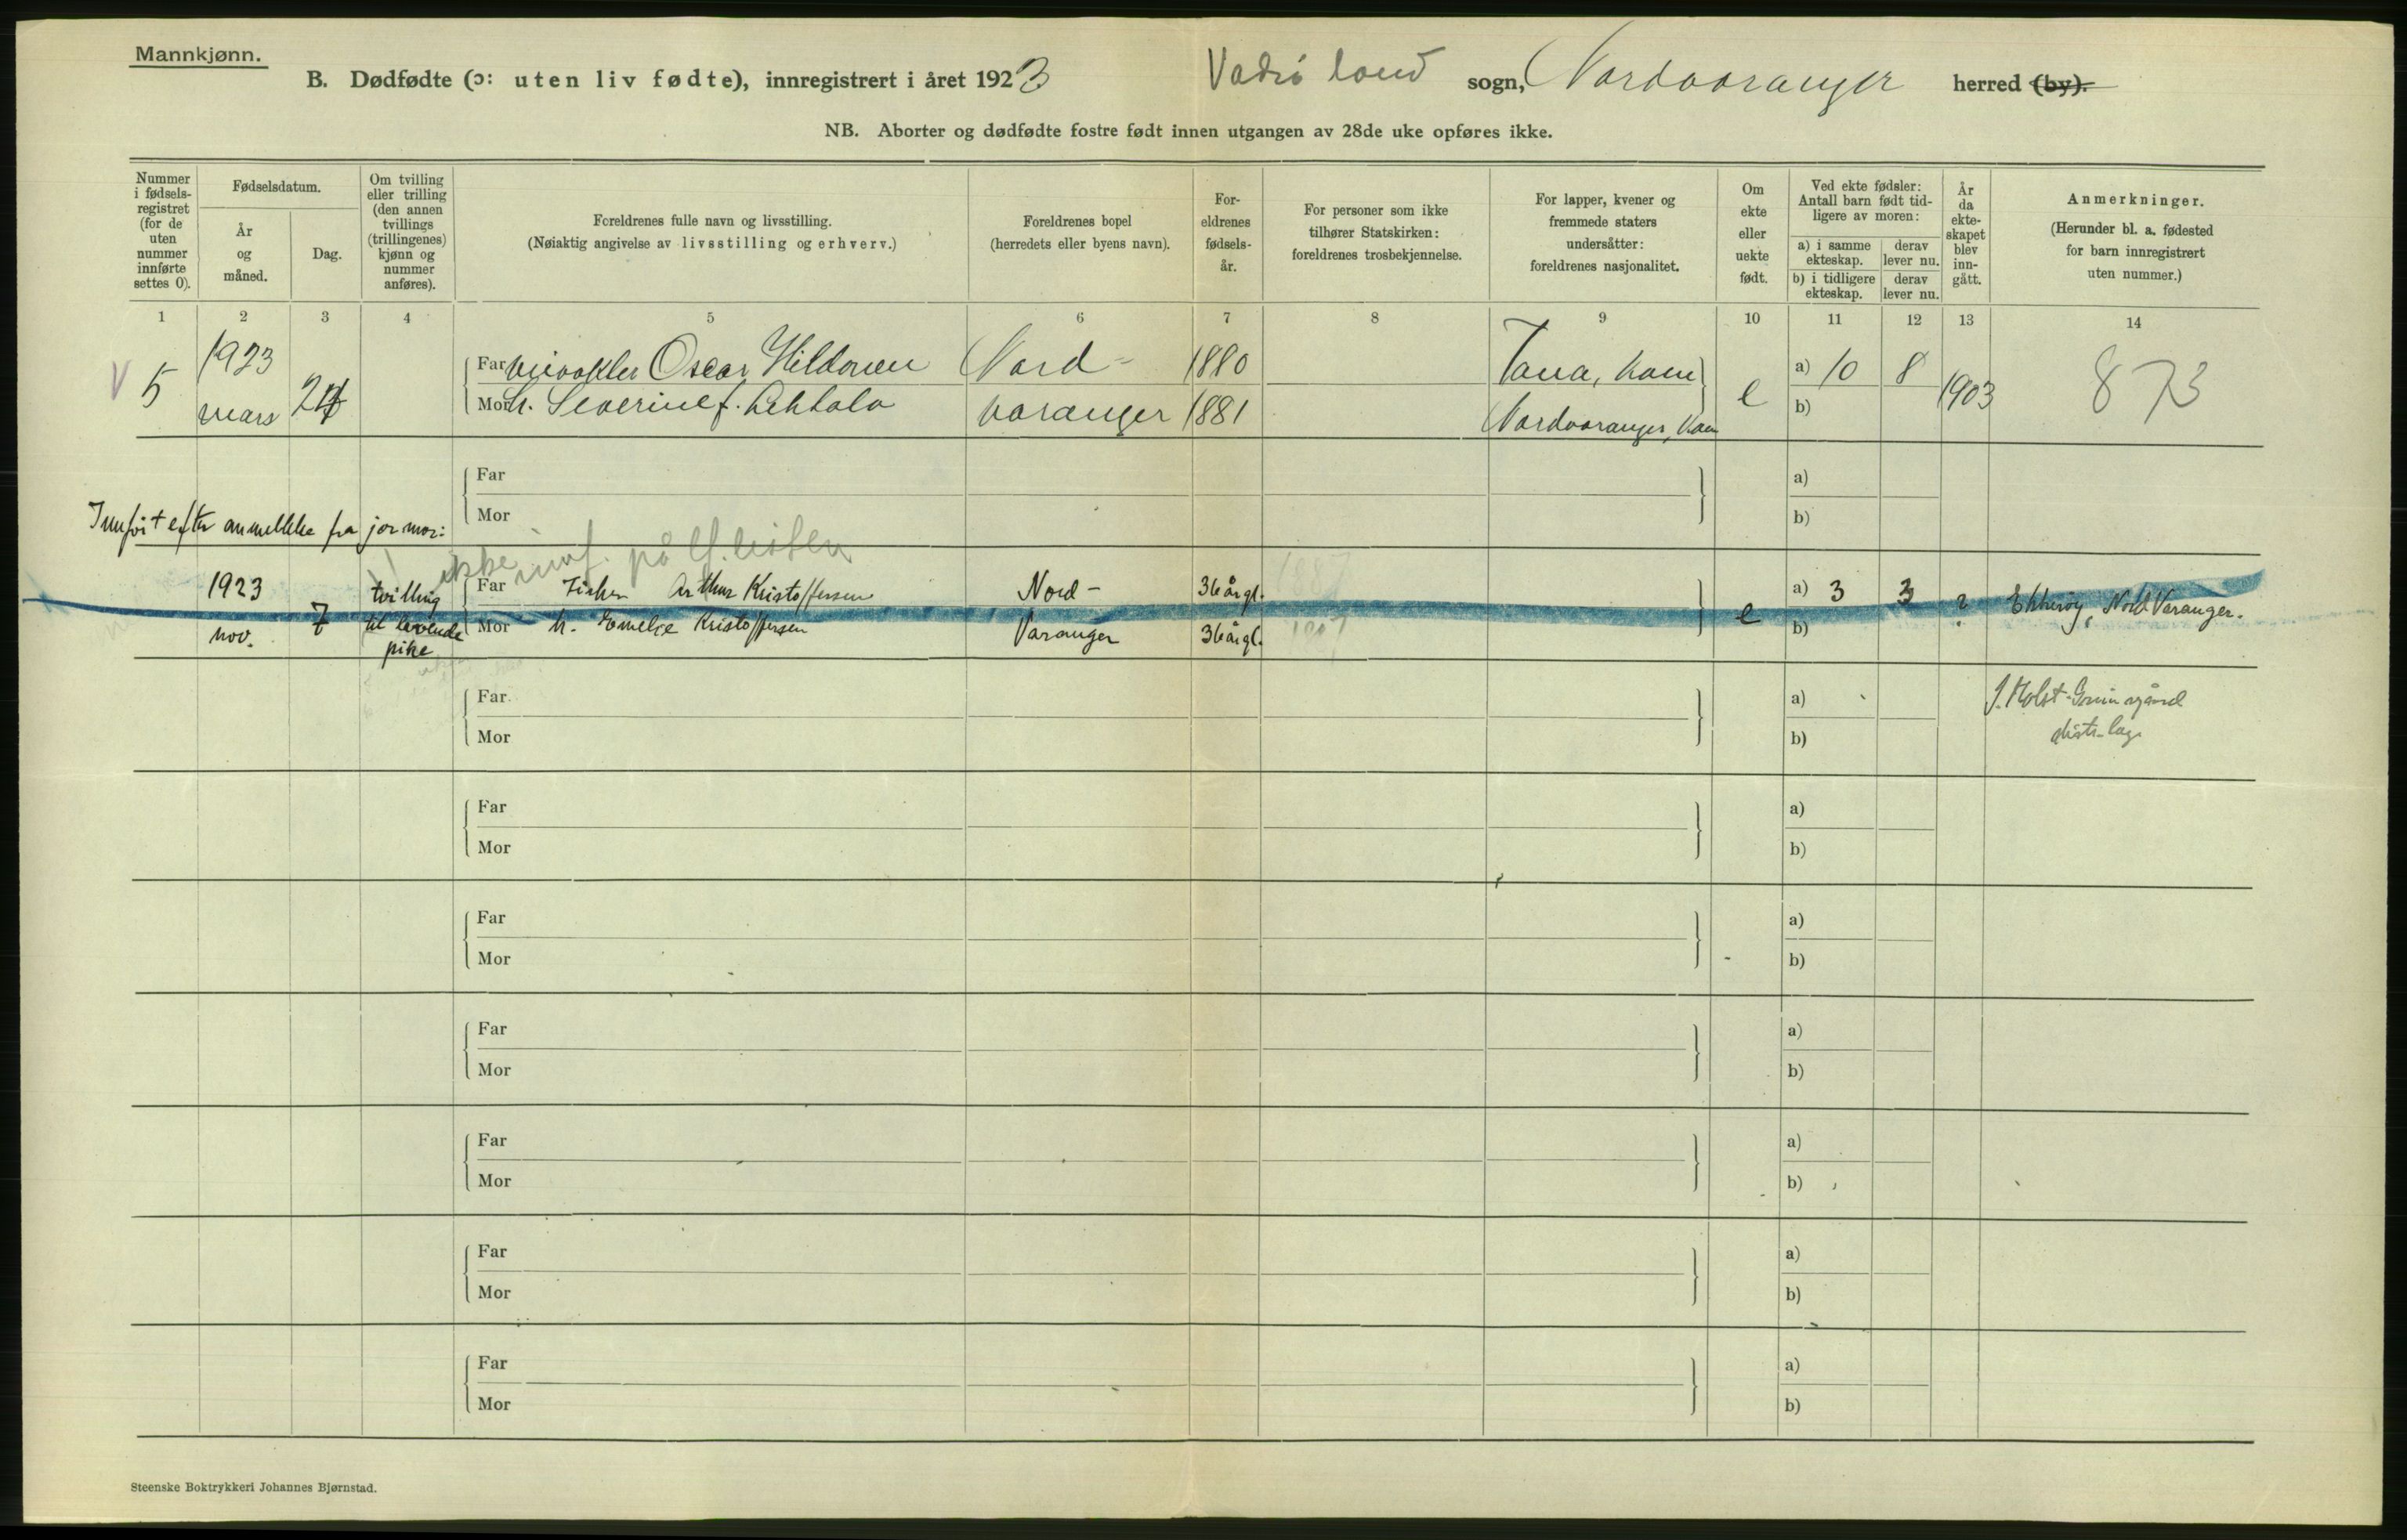 Mannkjønn.
B. Dødfødte (ɔ: uten liv fødte), innregistrert i året 1923 Vadsö land sogn, Nordvaranger herred (by).
NB. Aborter og dødfødte fostre født innen utgangen av 28de uke opføres ikke.
Nummer i fødsels-registret (for de uten nummer innførte settes 0).
Fødselsdatum.
År og måned.
Dag.
Om tvilling eller trilling (den annen tvillings (trillingenes) kjønn og nummer anføres).
Foreldrenes fulle navn og livsstilling.
(Nøiaktig angivelse av livsstilling og erhverv.)
Foreldrenes bopel
(herredets eller byens navn).
For-eldrenes fødsels-år.
For personer som ikke tilhører Statskirken: foreldrenes trosbekjennelse.
For lapper, kvener og fremmede staters undersåtter: foreldrenes nasjonalitet.
Om ekte eller uekte født.
Ved ekte fødsler: Antall barn født tid-ligere av moren:
a) i samme ekteskap.
derav lever nu.
b) i tidligere ekteskap.
derav lever nu.
År da ekte-skapet blev inn-gått.
Anmerkninger.
(Herunder bl. a. fødested for barn innregistrert uten nummer.)
1 2 3 4 5 6 7 8 9 10 11 12 13 14
V 5 1923 mars
Far Oscar Hildonen Nord- 1880 Tana, kven e a) 10 8 1903 873
Mor h. Severine f. varanger 1881 Nordvaranger, kven b)
Far a)
Mor b)
Innført efter anmeldelse fra jormor:
ikke innf. på
1923 7 tvilling Far Fisker Arthur Kristoffersen Nord- 36 år gl. 1887 e a) 3 3 ? Ekkerøy, Nord Varanger.
nov. til levende Mor h. Emelie Kristoffersen Varanger 36 år gl. 1887 b)
pike
Far a) J. Holst-
Mor b)
Far a)
Mor b)
Far a)
Mor b)
Far a)
Mor b)
Far a)
Mor b)
Far a)
Mor b)
Far a)
Mor b)
Steenske Boktrykkeri Johannes Bjørnstad.